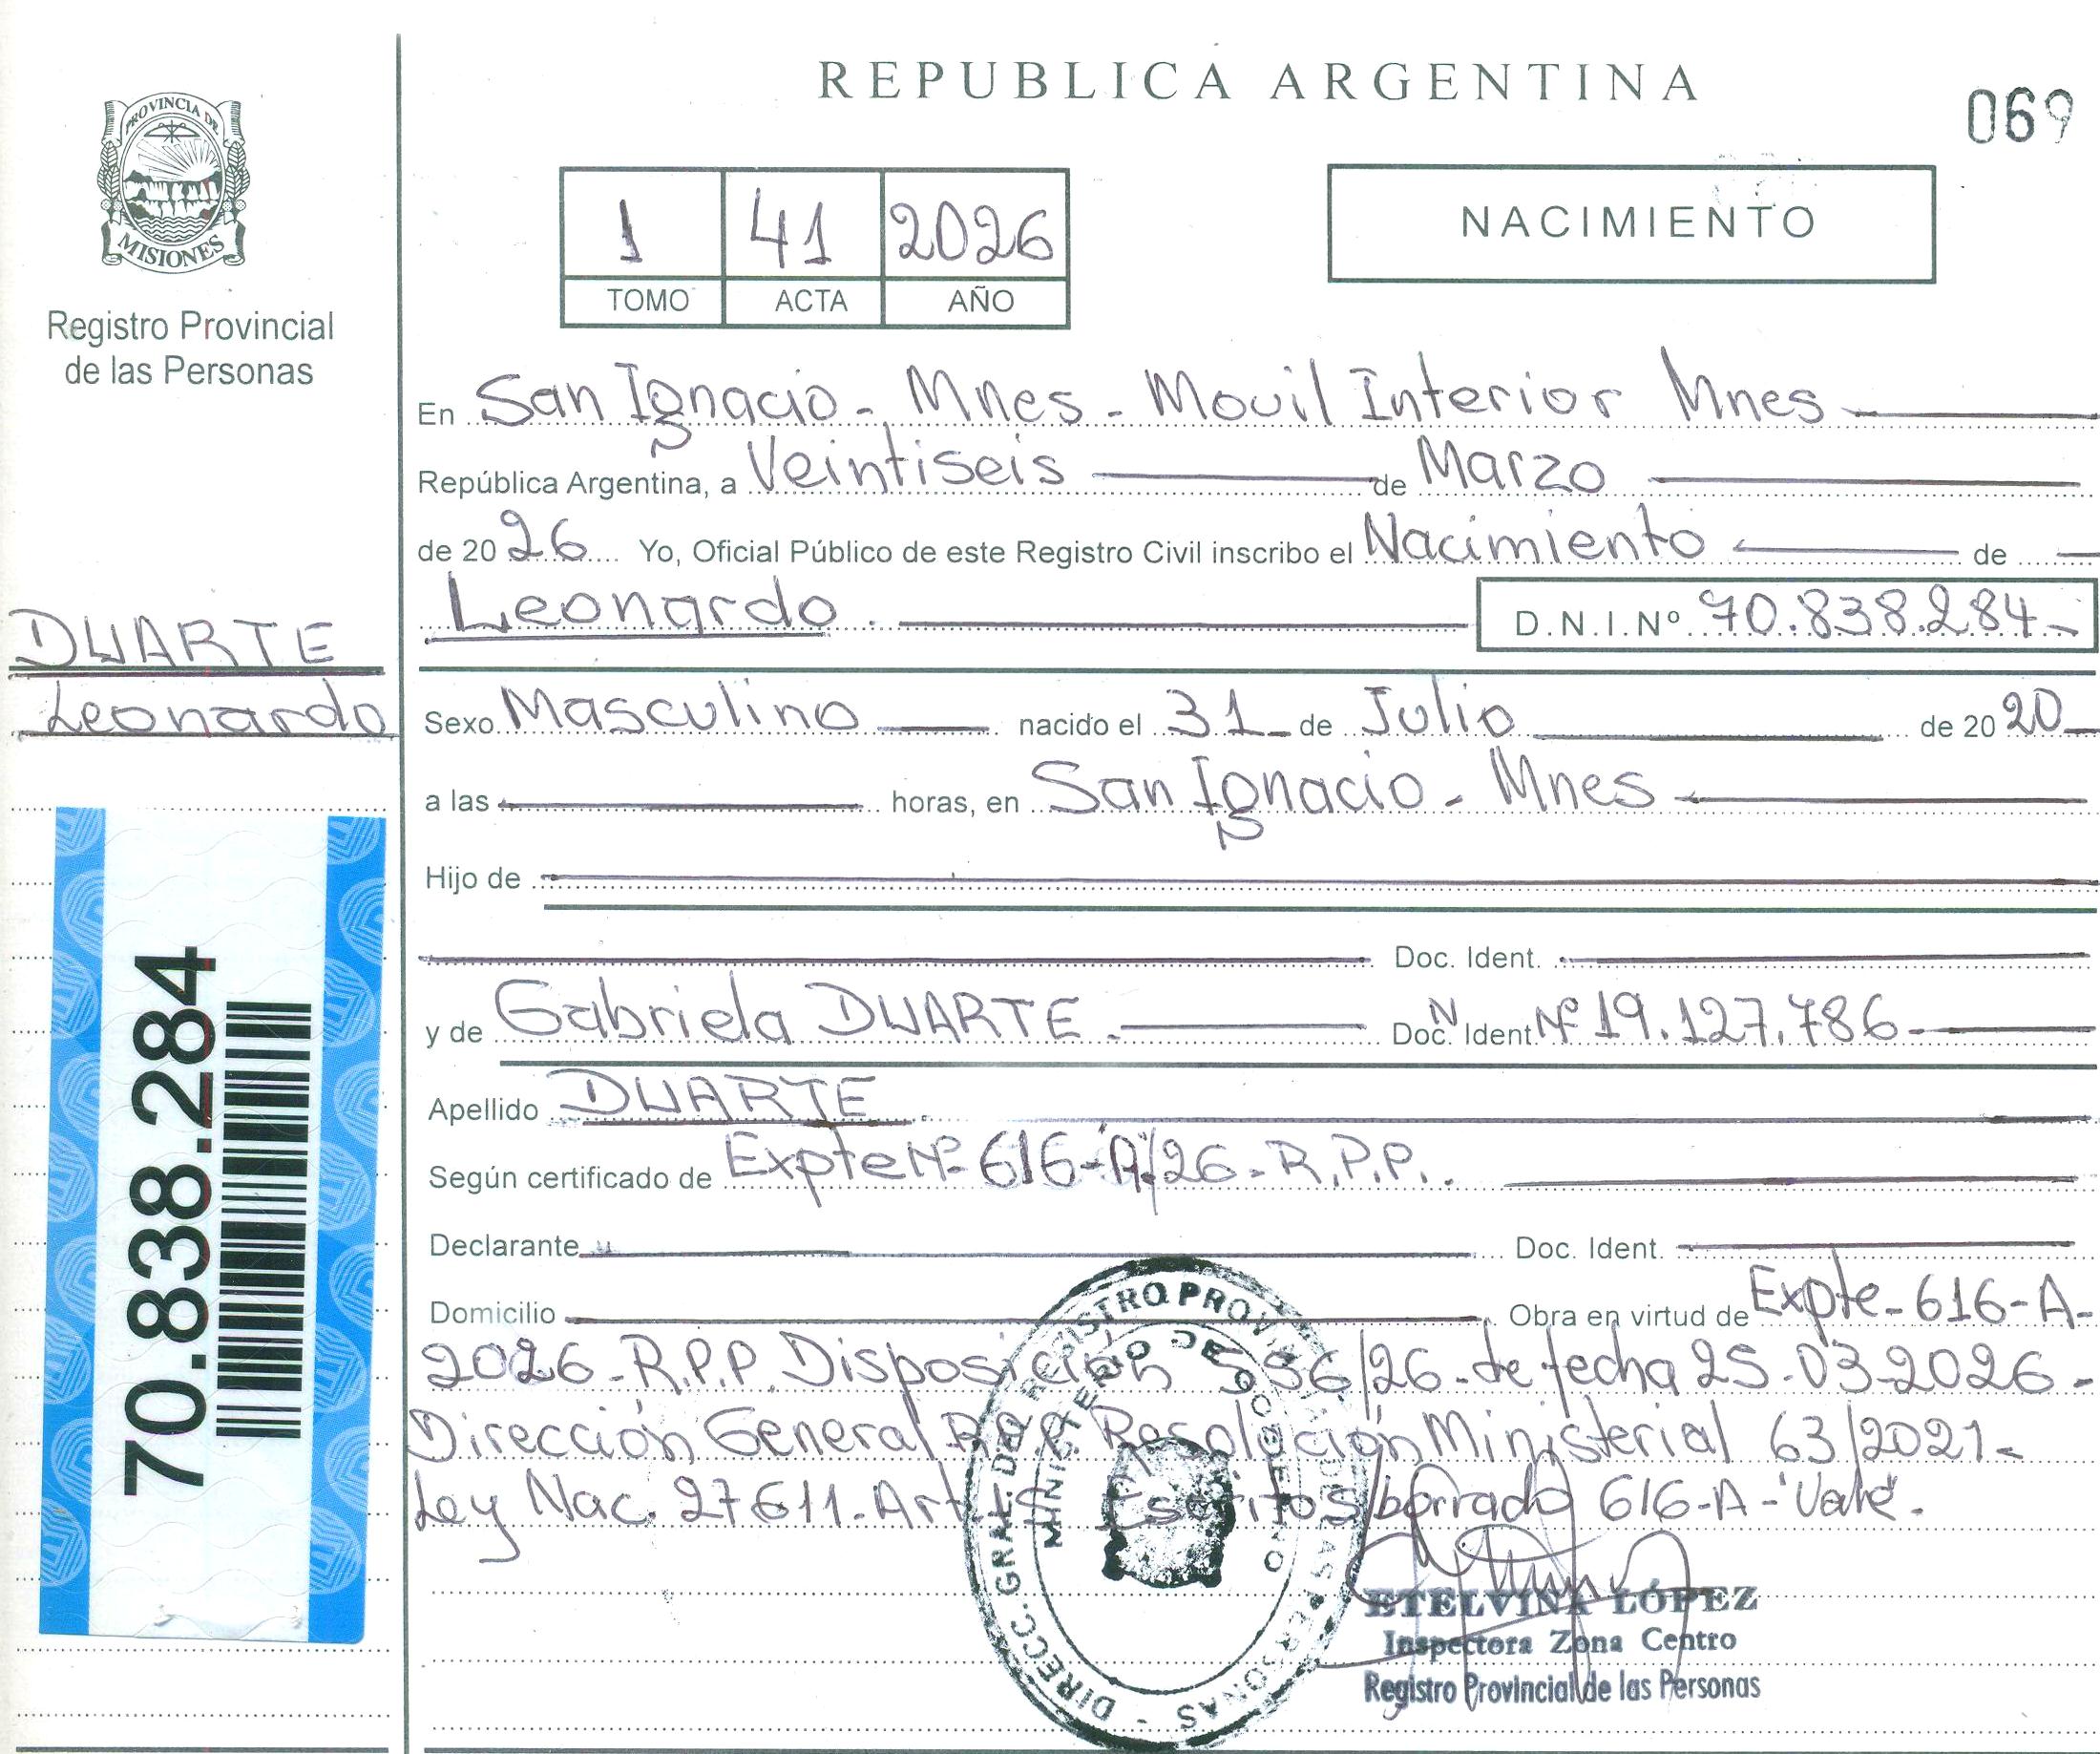 REPUBLICA ARGENTINA
069
PROVINCIA DE
MISIONES
Registro Provincial
de las Personas
1 41 2026
TOMO ACTA AÑO
NACIMIENTO
En San Ignacio - Mnes - Movil Interior Mnes
República Argentina, a Veintiseis de Marzo
de 20 26 Yo, Oficial Público de este Registro Civil inscribo el Nacimiento de
Leonardo. D.N.I.Nº 70.838.284
DUARTE
Leonardo
Sexo Masculino nacido el 31 de Julio de 20 20
a las horas, en San Ignacio - Mnes
Hijo de
Doc. Ident.
y de Gabriela DUARTE. Doc. Ident. Nº 19.127.786
Apellido DUARTE.
Según certificado de Expte Nº 616-A/26-R.P.P.
Declarante Doc. Ident.
Domicilio Obra en virtud de Expte-616-A-
2026-R.P.P. Disposición /26-de fecha 25-03-2026-
Dirección General R.P.P. Resolución Ministerial 63/2021-
Ley Nac. 27611-Art Escritos/borrado 616-A-"Vale".
70.838.284
DIRECC. GRAL. DEL REGISTRO PROVINCIAL DE LAS PERSONAS
MINISTERIO DE GOBIERNO
ETELVINA LÓPEZ
Inspectora Zona Centro
Registro Provincial de las Personas